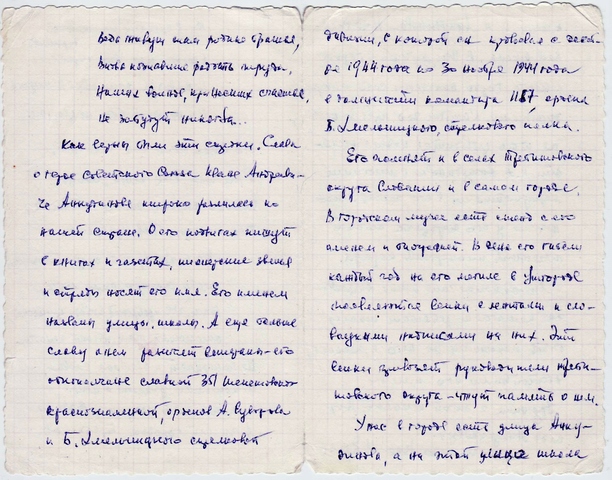 Ведь живут там родные
Битвы познавшие радость
Наших воинов, принёсших счастье,
Не забудут никогда...
Как верны были эти строки. Слава
о герое Советского Союза Иване Андрееви-
че широко разнеслась по
нашей стране. О его подвигах пишут
в книгах и газетах, пионерские звенья
и отряды носят его имя. Его именем
названы улицы, школы. А ещё больше
славу о нём разносят ветераны - его
однополчане славной 351 Шепетовской
краснознаменной, орденов А. Суворова
и Б. Хмельницкого стрелковой
дивизии, с которой он провоевал с
1944 года по 30 ноября 1944 года
в должности командира 1157, ордена
Б. Хмельницкого, стрелкового полка.
Его помнят и в селах Требишовского
округа Словакии и в самом городе.
В городском музее есть стенд с его
именем и биографией. В день его гибели
каждый год на его могиле в Ужгороде
появляются венки с лентами и сло-
вацкими надписями на них. Эти
венки привозят руководители Треби-
шовского округа - чтут память о нем.
У нас в городе есть улица
а на этой улице школа